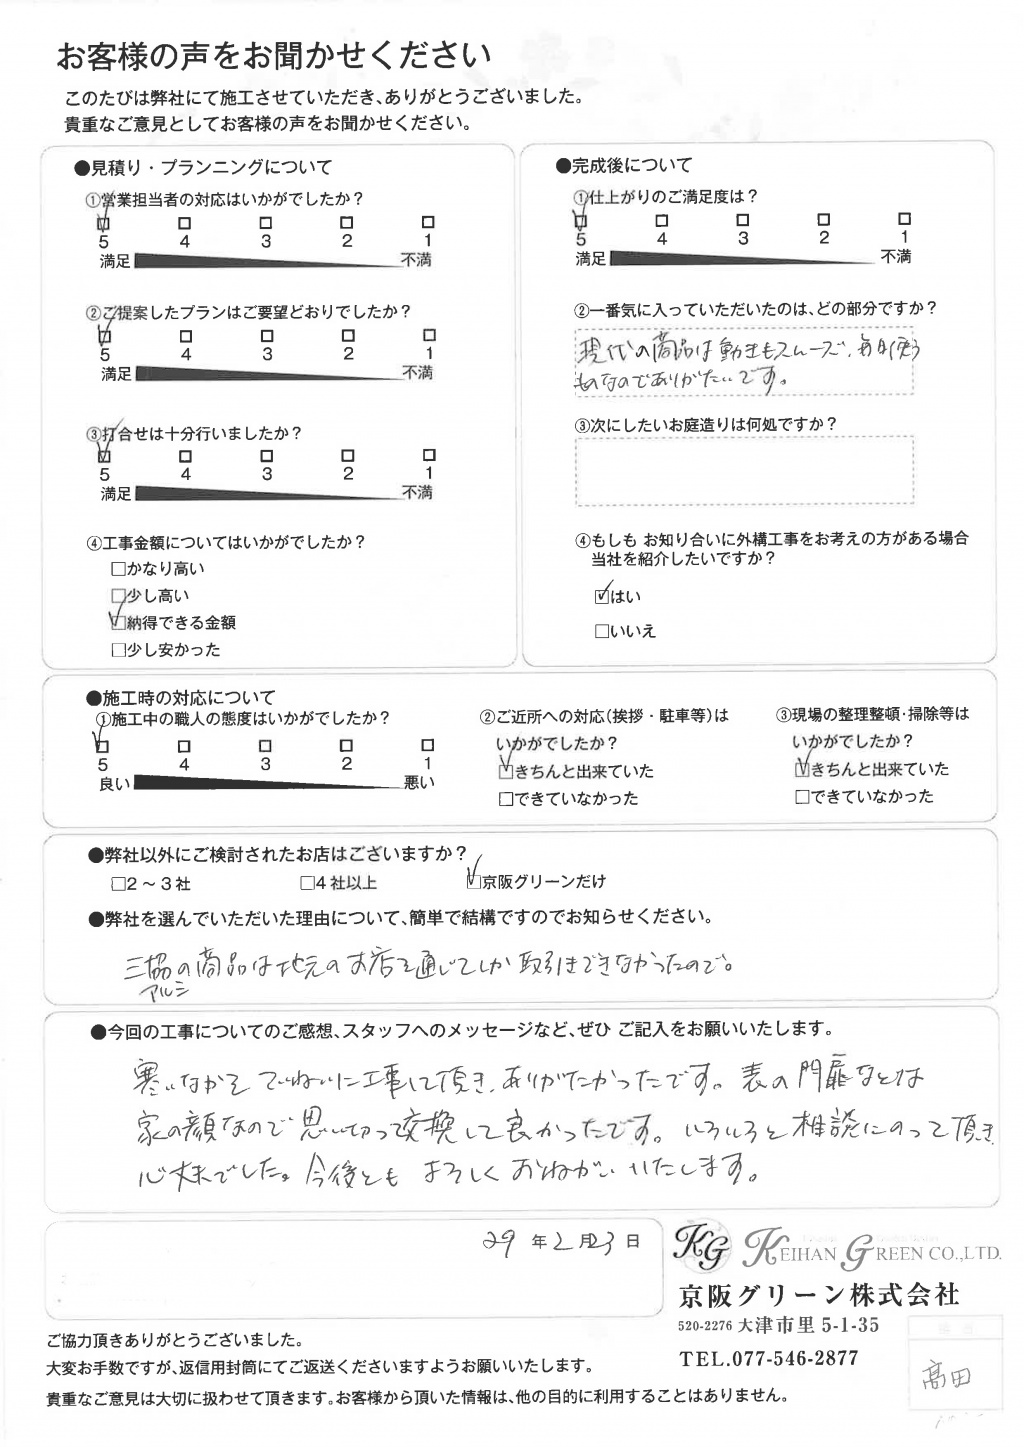 お客様の声をお聞かせください
このたびは弊社にて施工させていただき、ありがとうございました。
貴重なご意見としてお客様の声をお聞かせください。
●見積り・プランニングについて
①営業担当者の対応はいかがでしたか?
5 4 3 2 1
満足 不満
②ご提案したプランはご要望どおりでしたか?
5 4 3 2 1
満足 不満
③打合せは十分行いましたか?
5 4 3 2 1
満足 不満
④工事金額についてはいかがでしたか?
□かなり高い
□少し高い
☑納得できる金額
□少し安かった
●完成後について
①仕上がりのご満足度は?
5 4 3 2 1
満足 不満
②一番気に入っていただいたのは、どの部分ですか?
現代の商品は動きもスムーズ、毎日使う
ものなのでありがたいです。
③次にしたいお庭造りは何処ですか?
④もしも お知り合いに外構工事をお考えの方がある場合
当社を紹介したいですか?
☑はい
□いいえ
●施工時の対応について
①施工中の職人の態度はいかがでしたか?
5 4 3 2 1
良い 悪い
②ご近所への対応(挨拶・駐車等)は
いかがでしたか?
☑きちんと出来ていた
□できていなかった
③現場の整理整頓・掃除等は
いかがでしたか?
☑きちんと出来ていた
□できていなかった
●弊社以外にご検討されたお店はございますか?
□2~3社 □4社以上 ☑京阪グリーンだけ
●弊社を選んでいただいた理由について、簡単で結構ですのでお知らせください。
三協の商品は地元のお店を通じてしか取引きできなかったので。
アルミ
●今回の工事についてのご感想、スタッフへのメッセージなど、ぜひ ご記入をお願いいたします。
寒いなかを ていねいに工事して頂き、ありがたかったです。表の門扉などは
家の顔なので思い切って交換して良かったです。いろいろと相談にのって頂き
心丈夫でした。今後とも よろしく おねがい いたします。
29 年 2 月 23 日
KG KEIHAN GREEN CO.,LTD.
京阪グリーン株式会社
520-2276 大津市里 5-1-35
TEL.077-546-2877
ご協力頂きありがとうございました。
大変お手数ですが、返信用封筒にてご返送くださいますようお願いいたします。
貴重なご意見は大切に扱わせて頂きます。お客様から頂いた情報は、他の目的に利用することはありません。
髙田